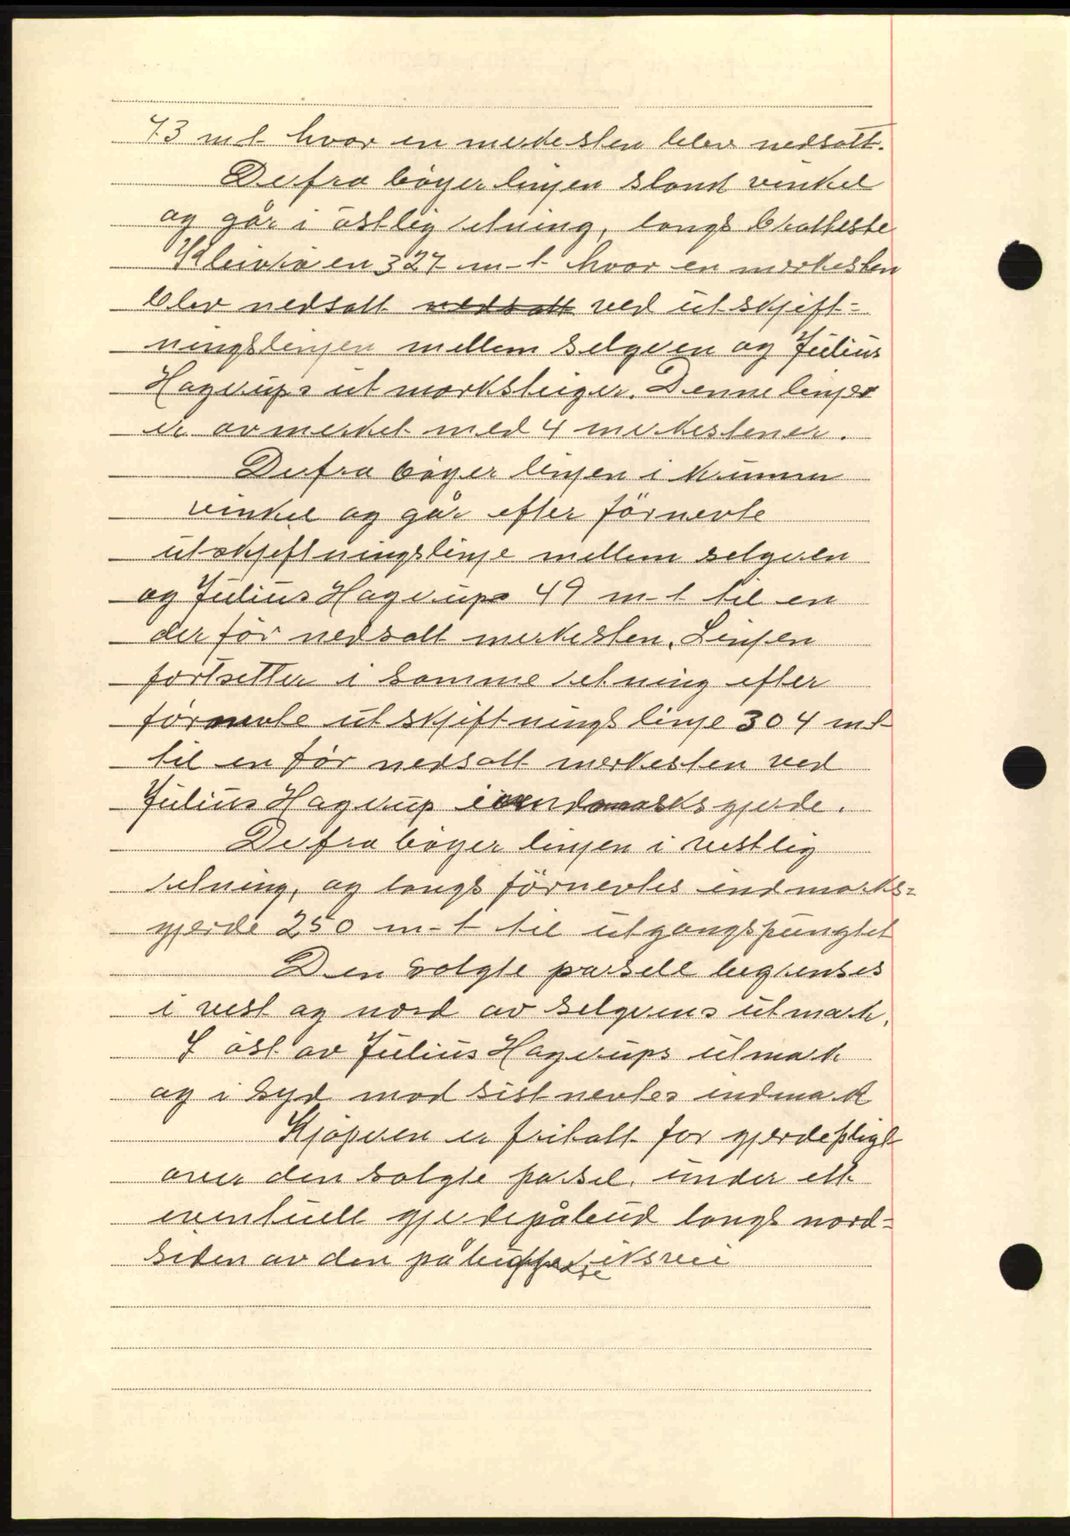 73 mt. hvor en merkesten blev nedsatt.
Derfra bøyer linjen stond vinkel
og går i østlig retning, langs bratteste
Kleivra en 327 m-t hvor en merkesten
blev nedsatt nedsatt ved utskjift-
ningslinjen mellem selgeren og Julius
Hagerups utmarksteiger. Denne linjer
er avmerket med 4 merkestener.
Derfra bøyer linjen i krumm
vinkel og går efter førnevte
utskjiftningslinje mellem selgeren
og Julius Hagerups 49 m-t til en
der før nedsatt merkesten. Linjen
fortsetter i somme retning efter
førnevte utskjiftningslinje 304 mt
til en før nedsatt merkesten ved
Julius Hagerup indmarksgjerde.
Derfra bøyer linjen i vestlig
retning, og langs førnevtes indmarks-
gjerde 250 m-t til utgangspungtet
Den solgte parsell begrenses
i vest og nord av selgerens utmark.
I øst av Julius Hagerups utmark
og i syd mod sistnevtes indmark
Kjøperen er fritatt for gjerdepligt
over den solgte parsel. under ett
eventuelt gjerdepåbud langs nord-
siden av den riksvei